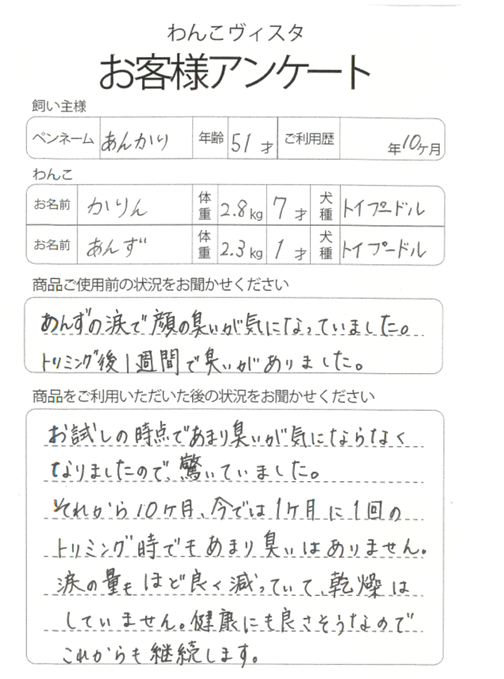 わんこヴィスタ
お客様アンケート
飼い主様
ペンネーム あんかり 年齢 51才 ご利用歴 年10ヶ月
わんこ
お名前 かりん 体重 2.8kg 7才 犬種 トイプードル
お名前 あんず 体重 2.3kg 1才 犬種 トイプードル
商品ご使用前の状況をお聞かせください
あんずの涙で顔の臭いが気になっていました。
トリミング後1週間で臭いがありました。
商品をご利用いただいた後の状況をお聞かせください
お試しの時点であまり臭いが気にならなく
なりましたので、驚いていました。
それから10ヶ月、今では1ヶ月に1回の
トリミング時でもあまり臭いはありません。
涙の量もほど良く減っていて、乾燥は
していません。健康にも良さそうなので
これからも継続します。